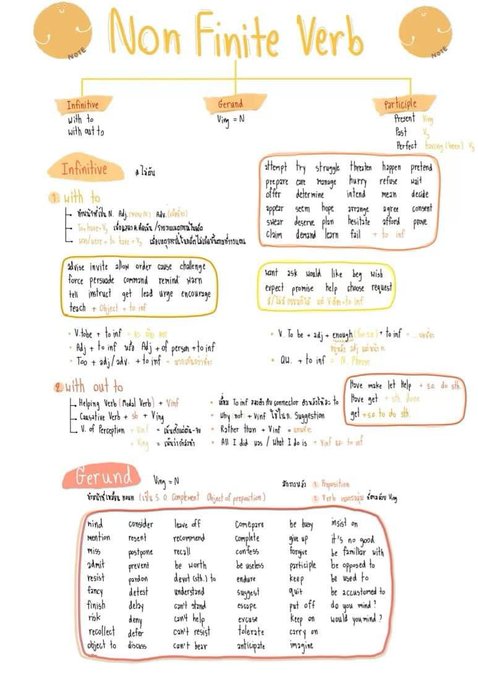 Non Finite Verb
NOTE
NOTE
Infinitive
with to
with out to
Gerund
Ving = N
Participle
Present Ving
Past V3
Perfect having (been) V3
Infinitive
1 with to
attempt try struggle threaten happen pretend
prepare care manage hurry refuse wait
offer determine intend mean decide
appear seem hope arrange agree consent
swear deserve plan hesitate afford prove
claim demand learn fail + to inf
advise invite allow order cause challenge
force persuade command remind warn
tell instruct get lead urge encourage
teach + Object + to inf
want ask would like beg wish
expect promise help choose request
V.tobe + to inf
Adj + to inf หรือ Adj + of person + to inf
Too + adj/adv. + to inf
V. To be + adj + enough + to inf
Qu. + to inf = N. Phrase
2 with out to
Helping Verb (Modal Verb) + Vinf
Causative Verb + sb + Ving
V. of Perception + Vinf
Ving
Why not + Vinf ใช้ใน Suggestion
Rather than + Vinf
All I did was / What I do is + Vinf
Have make let help + so do sth
Have get + sth done
get + so to do sth
Gerund
Ving = N
1 Preposition
ทำหน้าที่เหมือน noun (เป็น S O Complement Object of preposition)
mind consider leave off Comepare be busy insist on
mention resent recommend complete give up it's no good
miss postpone recall confess forgive be familiar with
admit prevent be worth be useless participle be opposed to
resist pardon devot (sth.) to endure keep be used to
fancy detest understand suggest quit be accustomed to
finish delay can't stand escape put off do you mind?
risk deny can't help excuse keep on would you mind?
recollect defer can't resist tolerate carry on
object to discuss can't bear anticipate imagine